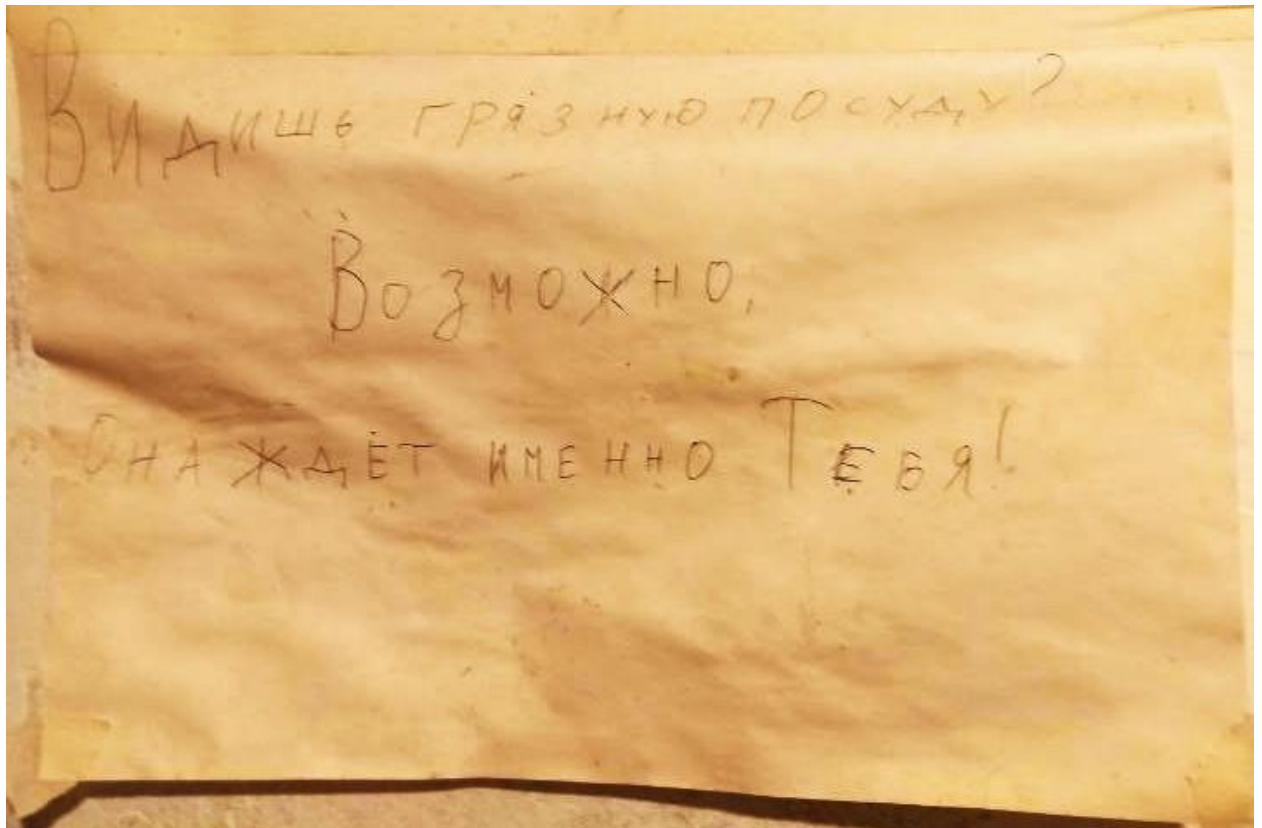 Видишь грязную посуду?
Возможно,
Она ждёт именно Тебя!